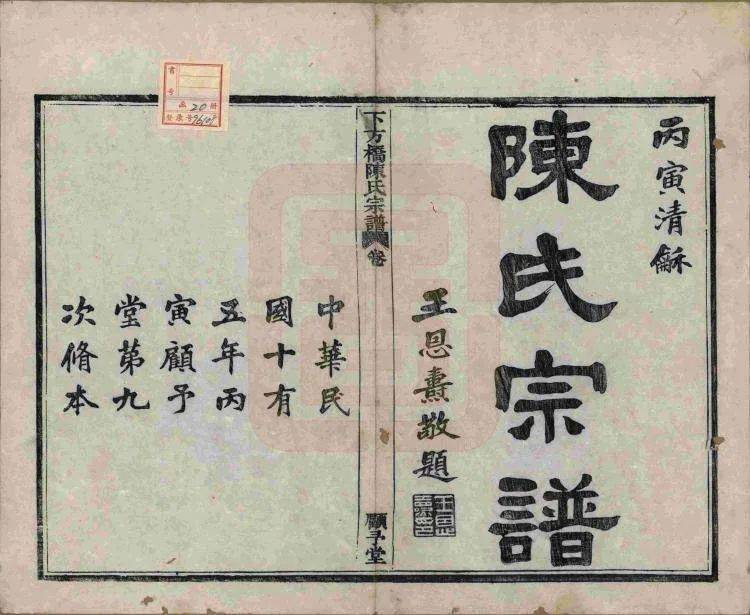 丙寅清龢
陳氏宗譜
王恩燾敬題
下方橋陳氏宗譜
卷
顧予堂
中華民
國十有
五年丙
寅顧予
堂第九
次脩本
書號
函 20 冊
登录号